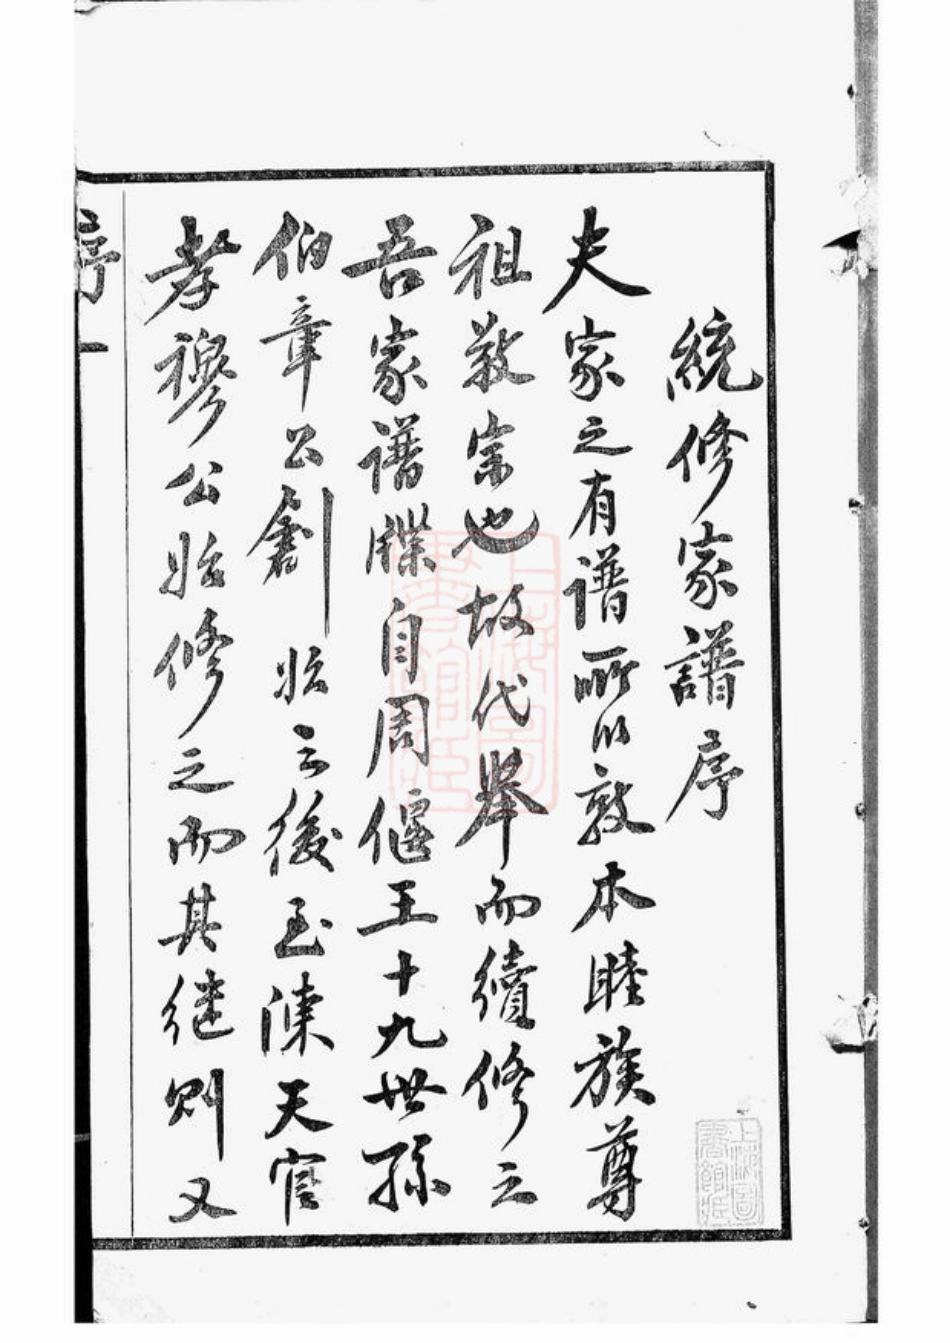 統修家譜序
夫家之有譜所以敦本睦族尊
祖敬宗也故代舉而續修之
吾家譜牒自周偃王十九世孫
伯章公創始之後至陳天官
孝穆公始修之而其继則又
序 一
上海图書館藏